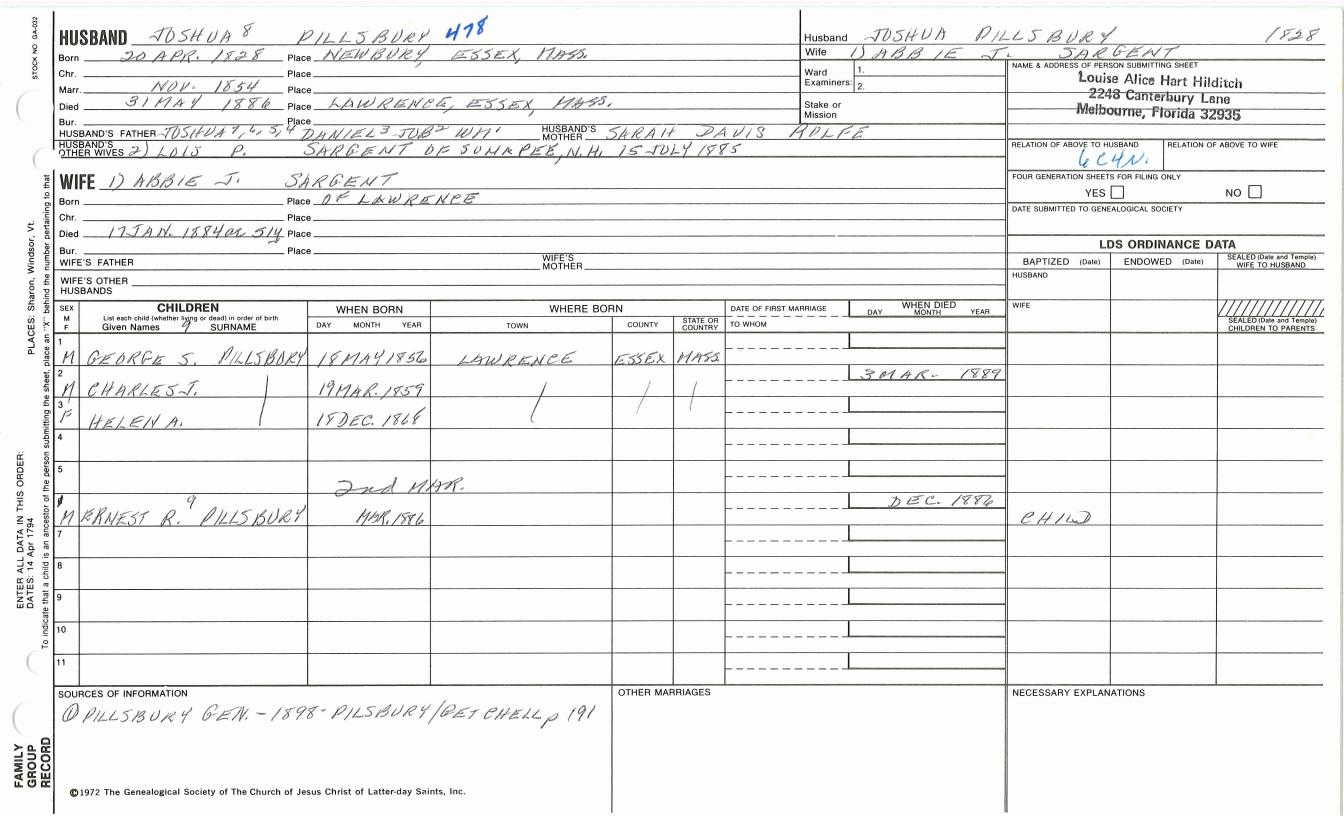 STOCK NO. GA-032
HUSBAND JOSHUA 8 PILLSBURY 478
Born 20 APR. 1828 Place NEWBURY, ESSEX, MASS.
Chr. Place
Marr. NOV. 1854 Place
Died 31 MAY 1886 Place LAWRENCE, ESSEX, MASS.
Bur. Place
HUSBAND'S FATHER JOSHUA 7, 6, 5, 4 DANIEL 3 JOB 2 WM 1 HUSBAND'S MOTHER SARAH DAVIS ROLFE
HUSBAND'S OTHER WIVES 2) LOIS P. SARGENT OF SUNAPEE, N.H. 15 JULY 1885
Husband JOSHUA PILLSBURY 1828
Wife 1) ABBIE J. SARGENT
Ward Examiners: 1.
2.
Stake or Mission
NAME & ADDRESS OF PERSON SUBMITTING SHEET
Louise Alice Hart Hilditch
2248 Canterbury Lane
Melbourne, Florida 32935
RELATION OF ABOVE TO HUSBAND RELATION OF ABOVE TO WIFE
6C4N.
FOUR GENERATION SHEETS FOR FILING ONLY
YES NO
DATE SUBMITTED TO GENEALOGICAL SOCIETY
WIFE 1) ABBIE J. SARGENT
Born Place OF LAWRENCE
Chr. Place
Died 17 JAN. 1884 or 5 Place
Bur. Place
WIFE'S FATHER WIFE'S MOTHER
WIFE'S OTHER HUSBANDS
LDS ORDINANCE DATA
BAPTIZED (Date) ENDOWED (Date) SEALED (Date and Temple) WIFE TO HUSBAND
HUSBAND
WIFE
SEALED (Date and Temple) CHILDREN TO PARENTS
SEX M F
CHILDREN
List each child (whether living or dead) in order of birth
Given Names 9 SURNAME
WHEN BORN
DAY MONTH YEAR
WHERE BORN
TOWN COUNTY STATE OR COUNTRY
DATE OF FIRST MARRIAGE
TO WHOM
WHEN DIED
DAY MONTH YEAR
1
M GEORGE S. PILLSBURY 18 MAY 1856 LAWRENCE ESSEX MASS
2 3 MAR- 1889
M CHARLES J. 19 MAR. 1859
3
F HELEN A. 18 DEC. 1868
4
5
2nd MAR.
9 DEC. 1886
M ERNEST R. PILLSBURY MAR. 1886 CHILD
7
8
9
10
11
SOURCES OF INFORMATION OTHER MARRIAGES NECESSARY EXPLANATIONS
① PILLSBURY GEN. - 1898- PILSBURY/GETCHELL p 191
©1972 The Genealogical Society of The Church of Jesus Christ of Latter-day Saints, Inc.
PLACES: Sharon, Windsor, Vt.
To indicate that a child is an ancestor of the person submitting the sheet, place an "X" behind the number pertaining to that
ENTER ALL DATA IN THIS ORDER:
DATES: 14 Apr 1794
FAMILY
GROUP
RECORD